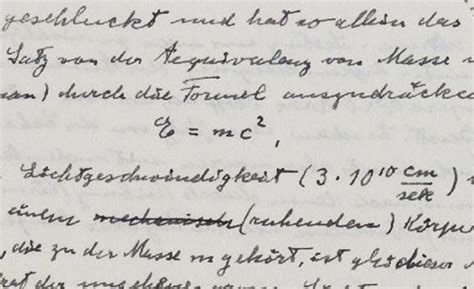 geschluckt und hat so allein das
Satz von der Aequivalenz von Masse
man) durch die Formel auszudrücken
E = mc²,
Lichtgeschwindigkeit (3 · 10¹⁰ cm/sek)
einem mechanisch (ruhenden) Körper
, die zu der Masse m gehört, ist gleich dieser